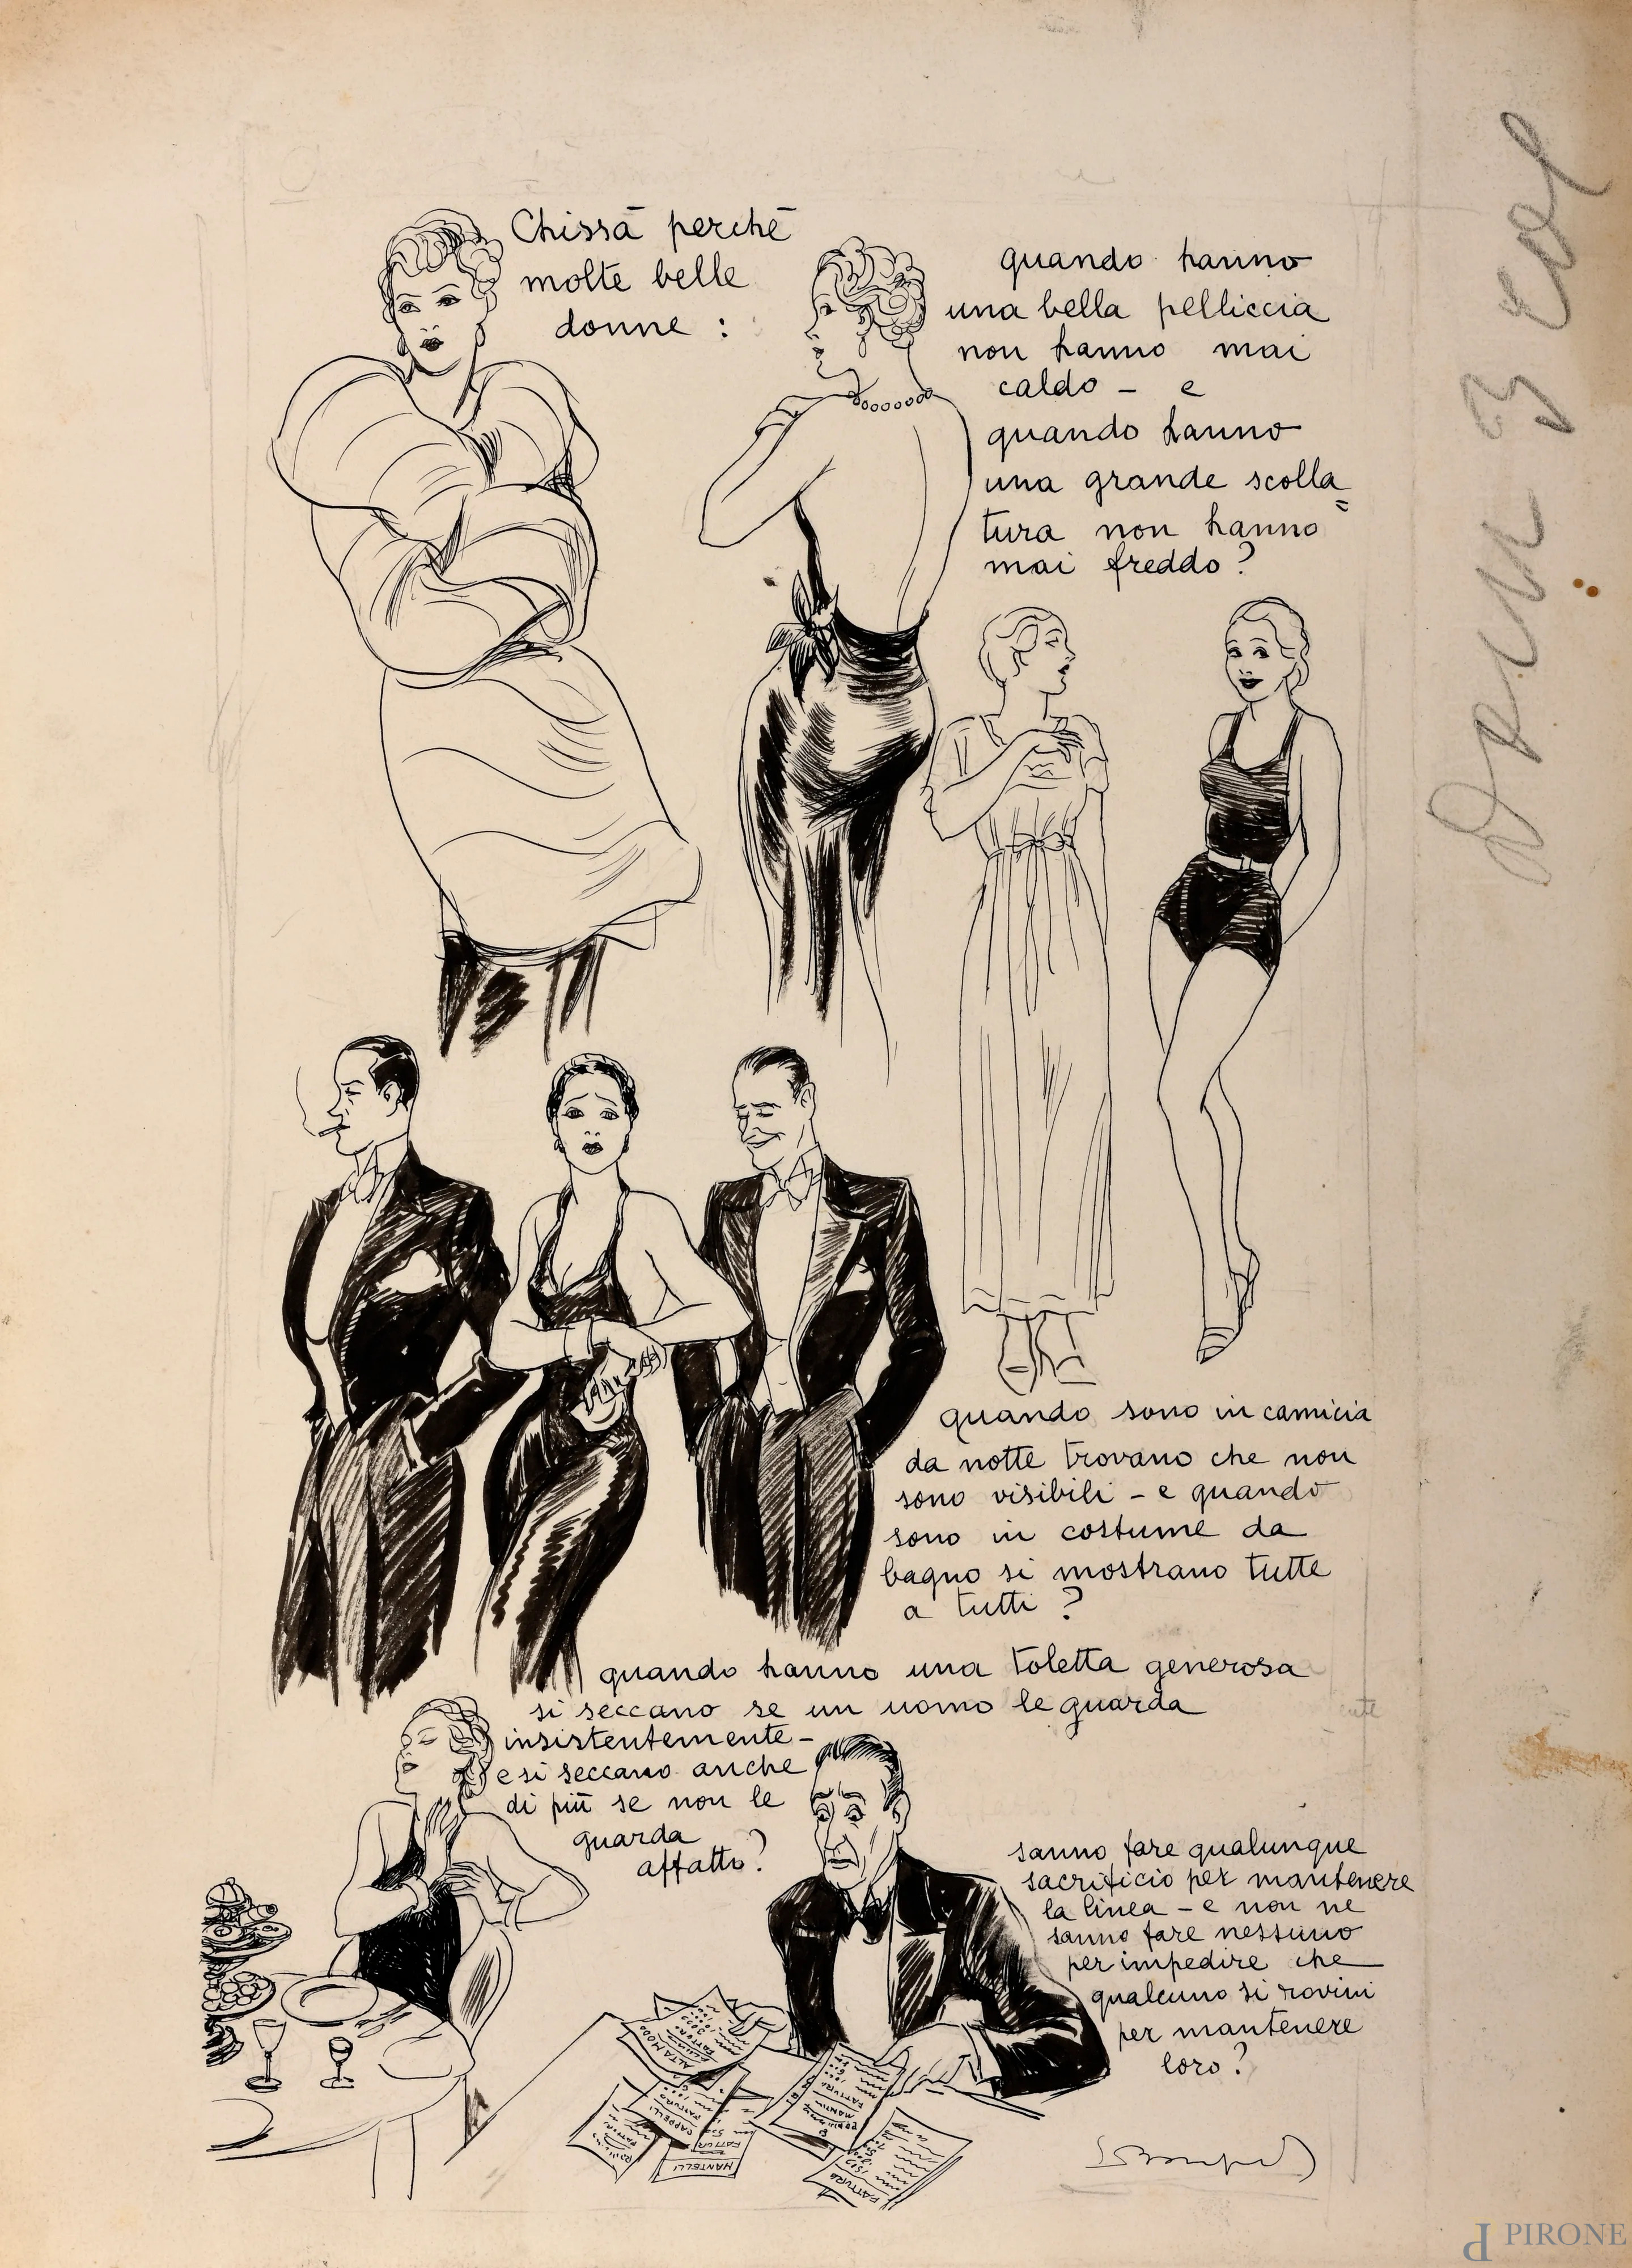 Chissà perchè
molte belle
donne :
quando hanno
una bella pelliccia
non hanno mai
caldo – e
quando hanno
una grande scolla=
tura non hanno
mai freddo?
quando sono in camicia
da notte trovano che non
sono visibili – e quando
sono in costume da
bagno si mostrano tutte
a tutti ?
quando hanno una toletta generosa
si seccano se un uomo le guarda
insistentemente –
e si seccano anche
di più se non le
guarda
affatto?
sanno fare qualunque
sacrificio per mantenere
la linea – e non ne
sanno fare nessuno
per impedire che
qualcuno si rovini
per mantenere
loro?
ALTA MODA
FATTURA
CAPPELLI
FATTURA
MANTELLI
FATTURA
FATTURA
FATTURA
3 col
PIRONE